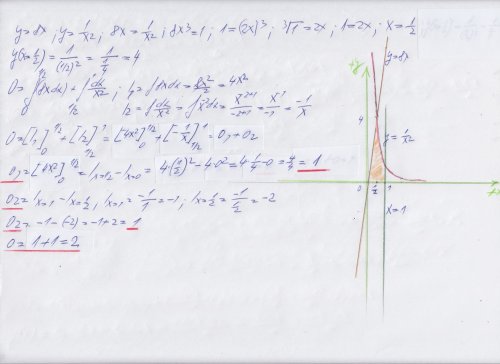 y=8x ; y=1/x² ; 8x=1/x² ; 8x³=1 ; 1=(2x)³ ; ³√1=2x ; 1=2x ; x=1/2
y(x=1/2)=1/(1/2)²=1/(1/4)=4
O=∫₀^(1/2)(8x dx)+∫_(1/2)^1 dx/x² ; I₁=∫8x dx=8x²/2=4x²
I₂=∫dx/x²=∫x⁻²dx=x⁻²⁺¹/-2+1=x⁻¹/-1=-1/x
O=[I₁]₀^(1/2)+[I₂]_(1/2)^1=[4x²]₀^(1/2)+[-1/x]_(1/2)^1=O₁+O₂
O₁=[4x²]₀^(1/2)=I x=1/2-I x=0=4·(1/2)²-4·0²=4·1/4-0=4/4=1
O₂=I x=1-I x=1/2, I x=1=-1/1=-1; I x=1/2=-1/(1/2)=-2
O₂=-1-(-2)=-1+2=1
O=1+1=2
+y
y=8x
4
y=1/x²
0 1/2 1
x=1